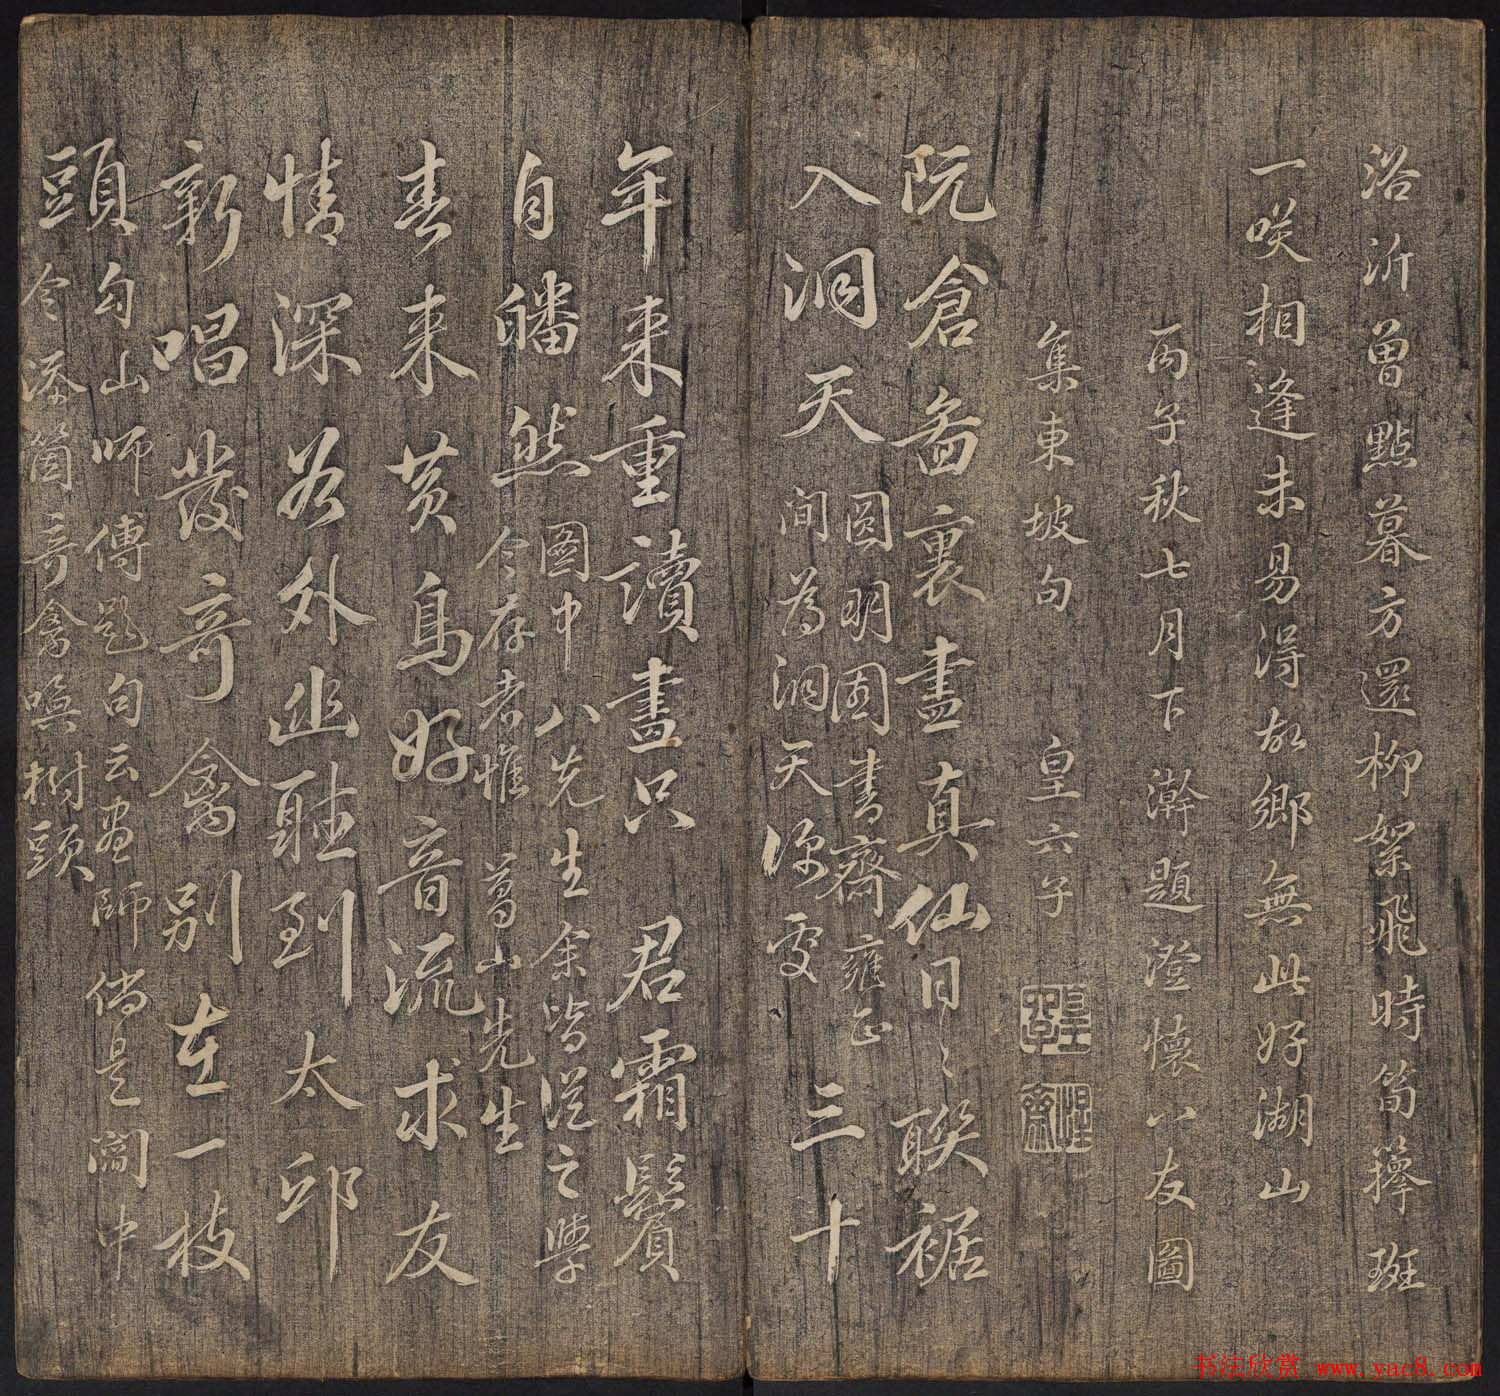 浴沂曾點暮方還柳絮飛時筍籜斑
一咲相逢未易得故鄉無此好湖山
丙子秋七月下澣題澄懷八友圖
集東坡句 皇六子
阮倉畫裏盡真仙日〻聯裾
入洞天
圓明園書齋雍正
間為洞天深處
三十
年來重讀畫只君霜鬢
自皤然
圖中八先生余皆從之學
今存者惟葛山先生
春來黃鳥好音流求友
情深谷外幽聽到太邱
新唱發奇禽別在一枝
頭
勾山師傅題句云畫師倘是閬中
令添箇奇禽喚樹頭
书法欣赏 www.yac8.com